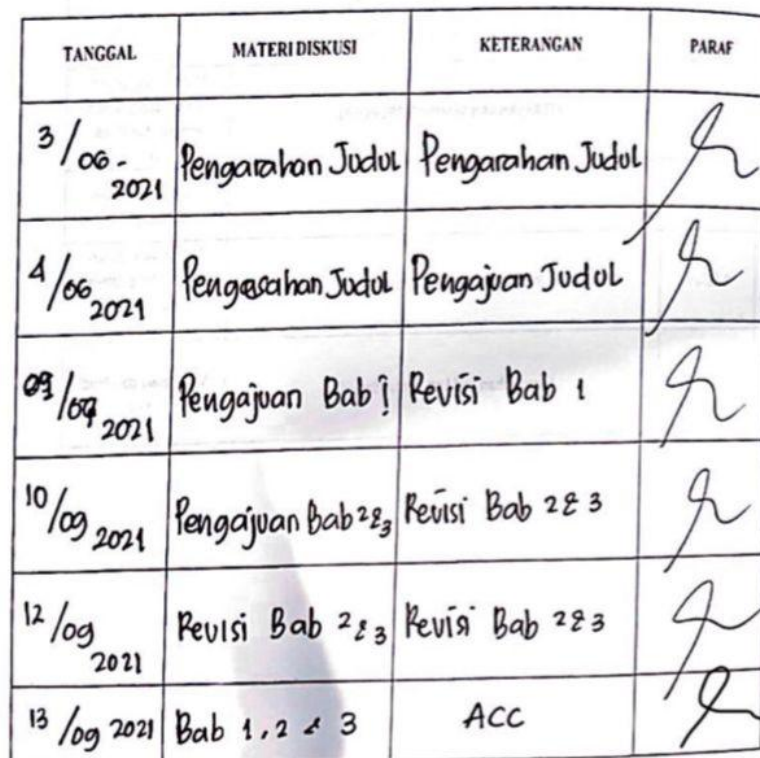 TANGGAL MATERI DISKUSI KETERANGAN PARAF
3/06-2021 Pengarahan Judul Pengarahan Judul
4/06 2021 Pengesahan Judul Pengajuan Judul
09/09 2021 Pengajuan Bab 1 Revisi Bab 1
10/09 2021 Pengajuan Bab 2&3 Revisi Bab 2&3
12/09 2021 Revisi Bab 2&3 Revisi Bab 2&3
13/09 2021 Bab 1,2 & 3 ACC